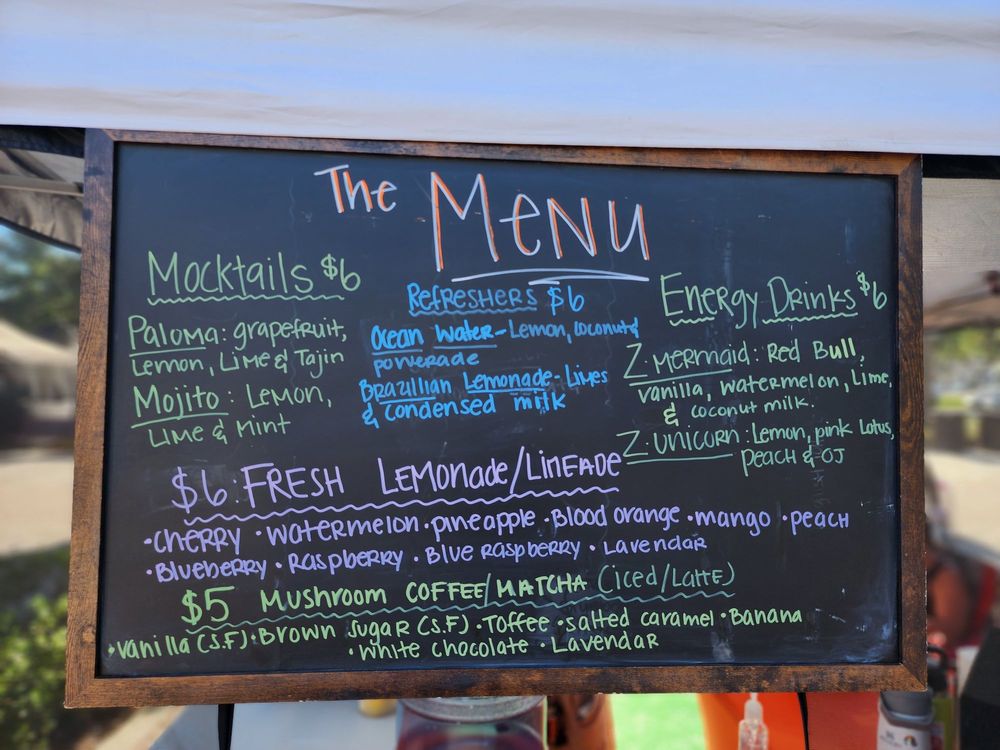 The Menu
Mocktails $6
Paloma: grapefruit,
Lemon, Lime & Tajin
Mojito: Lemon,
Lime & Mint
Refreshers $6
Ocean Water - Lemon, coconut &
powerade
Brazillian Lemonade - Limes
& condensed milk
Energy Drinks $6
Z Mermaid: Red Bull,
vanilla, watermelon, Lime,
& coconut milk.
Z Unicorn: Lemon, pink Lotus,
peach & OJ
$6: FRESH Lemonade/Limeade
•cherry •watermelon •pineapple •Blood orange •mango •peach
•Blueberry •Raspberry •Blue raspberry •Lavendar
$5 Mushroom COFFEE/MATCHA (iced/Latte)
•vanilla (S.F) •Brown Sugar (S.F) •Toffee •salted caramel •Banana
•white chocolate •Lavendar